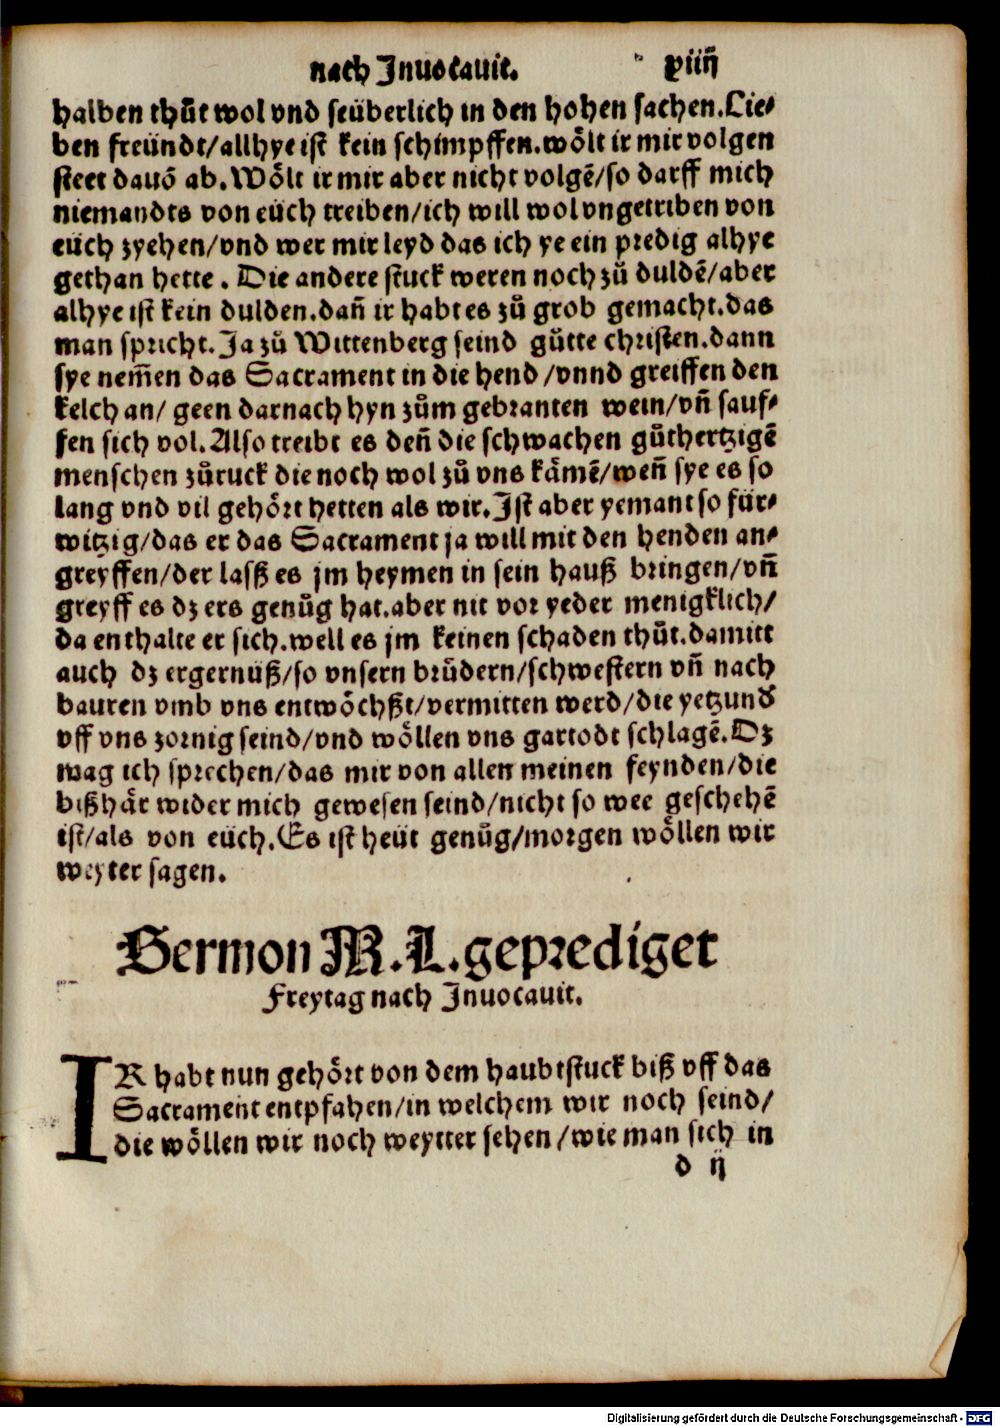 nach Jnuocauit. xiiij
halben thůt wol vnd seüberlich in den hohen sachen. Lie⸗
ben freündt/allhye ist kein schimpffen. wölt ir mir volgen
steet dauō ab. Wölt ir mir aber nicht volgē/so darff mich
niemandts von eüch treiben/ich will wol vngetriben von
eüch zyehen/vnd wer mir leyd das ich ye ein predig alhye
gethan hette. Die andere stuck weren noch zů duldē/aber
alhye ist kein dulden. dañ ir habt es zů grob gemacht. das
man spricht. Ja zů Wittenberg seind gůtte christen. dann
sye nem̄en das Sacrament in die hend/vnnd greiffen den
kelch an/ geen darnach hyn zům gebranten wein/vñ sauf⸗
fen sich vol. Also treibt es deñ die schwachen gůthertzigē
menschen zůruck die noch wol zů vns kämē/weñ sye es so
lang vnd vil gehört hetten als wir. Jst aber yemant so für⸗
witzig/das er das Sacrament ja will mit den henden an⸗
greyffen/der lasß es jm heymen in sein hauß bringen/vñ
greyff es dz ers genůg hat. aber nit vor yeder menigklich/
da enthalte er sich. well es jm keinen schaden thůt. damitt
auch dz ergernüß/so vnsern brüdern/schwestern vñ nach
bauren vmb vns entwöchßt/vermitten werd/die yetzund
vff vns zornig seind/vnd wöllen vns gartodt schlagē. Dz
mag ich sprechen/das mir von allen meinen feynden/die
bißhär wider mich gewesen seind/nicht so wee geschehē
ist/als von eüch. Es ist heüt genůg/morgen wöllen wir
weyter sagen.
Sermon M. L. geprediget
Freytag nach Jnuocauit.
IR habt nun gehört von dem haubtstuck biß vff das
Sacrament entpfahen/in welchem wir noch seind/
die wöllen wir noch weytter sehen/wie man sich in
d ij
Digitalisierung gefördert durch die Deutsche Forschungsgemeinschaft - DFG